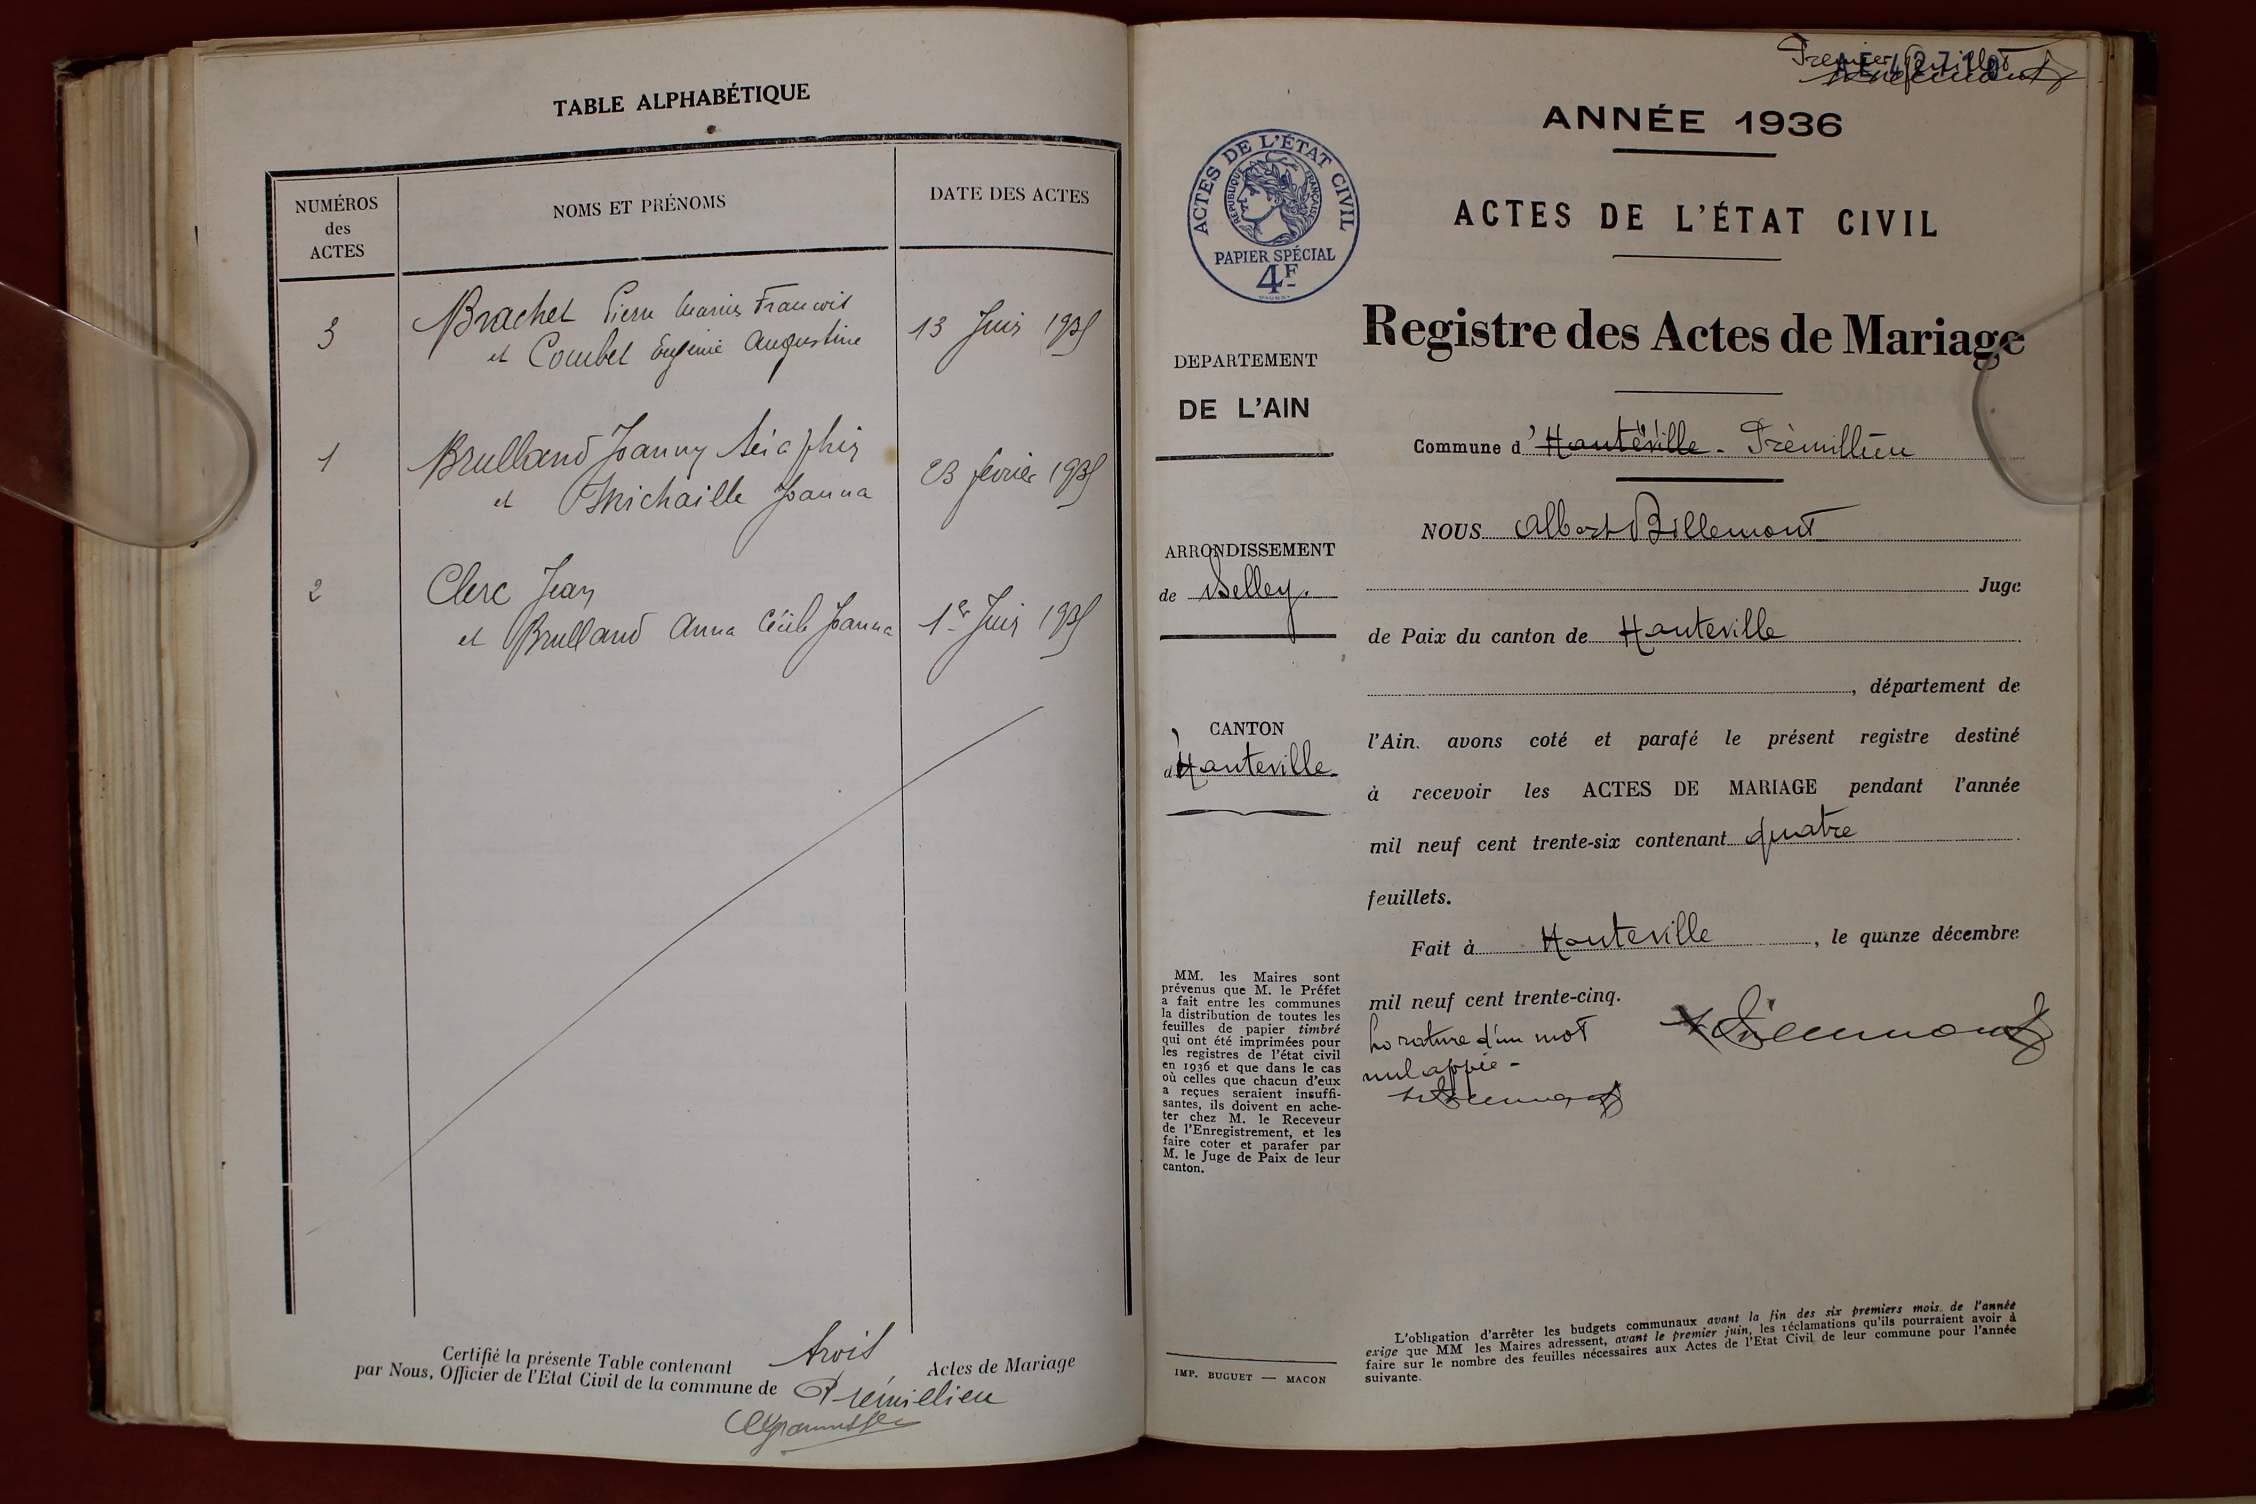 TABLE ALPHABÉTIQUE
NUMÉROS
des
ACTES
NOMS ET PRÉNOMS
DATE DES ACTES
3
Brachet Pierre Marius Francois
et Combet Eugénie Augustine
13 Juin 1935
1
Brulland Joanny Séraphin
et Michaille Joanna
23 février 1935
2
Clerc Jean
et Brulland Anna Cécile Joanna
1er Juin 1935
Certifié la présente Table contenant trois Actes de Mariage
par Nous, Officier de l'Etat Civil de la commune de Prémillieu
Premier feuillet
AE 42710
ANNÉE 1936
ACTES DE L'ÉTAT CIVIL
RÉPUBLIQUE FRANÇAISE
PAPIER SPÉCIAL
4F
ACTES DE L'ÉTAT CIVIL
Registre des Actes de Mariage
DEPARTEMENT
DE L'AIN
Commune d'Hauteville - Prémillieu
NOUS Albert Billemont
ARRONDISSEMENT
de Belley.
Juge
de Paix du canton de Hauteville
, département de
CANTON
d'Hauteville
l'Ain. avons coté et parafé le présent registre destiné
à recevoir les ACTES DE MARIAGE pendant l'année
mil neuf cent trente-six contenant quatre
feuillets.
Fait à Hauteville, le quinze décembre
mil neuf cent trente-cinq.
rature d'un mot
nul
MM. les Maires sont
prévenus que M. le Préfet
a fait entre les communes
la distribution de toutes les
feuilles de papier timbré
qui ont été imprimées pour
les registres de l'état civil
en 1936 et que dans le cas
où celles que chacun d'eux
a reçues seraient insuffi-
santes, ils doivent en ache-
ter chez M. le Receveur
de l'Enregistrement, et les
faire coter et parafer par
M. le Juge de Paix de leur
canton.
IMP. BUGUET — MACON
L'obligation d'arrêter les budgets communaux avant la fin des six premiers mois de l'année
exige que MM les Maires adressent, avant le premier juin, les réclamations qu'ils pourraient avoir à
faire sur le nombre des feuilles nécessaires aux Actes de l'Etat Civil de leur commune pour l'année
suivante.